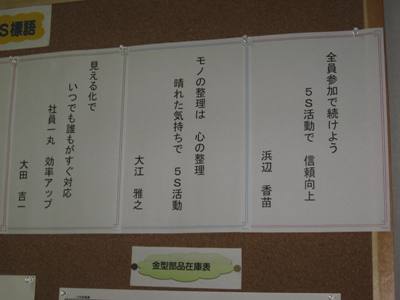 S標語
全員参加で続けよう
５Ｓ活動で　信頼向上
浜辺　香苗
モノの整理は　心の整理
晴れた気持ちで　５Ｓ活動
大江　雅之
見える化で
いつでも誰もがすぐ対応
社員一丸　効率アップ
大田　吉一
金型部品在庫表